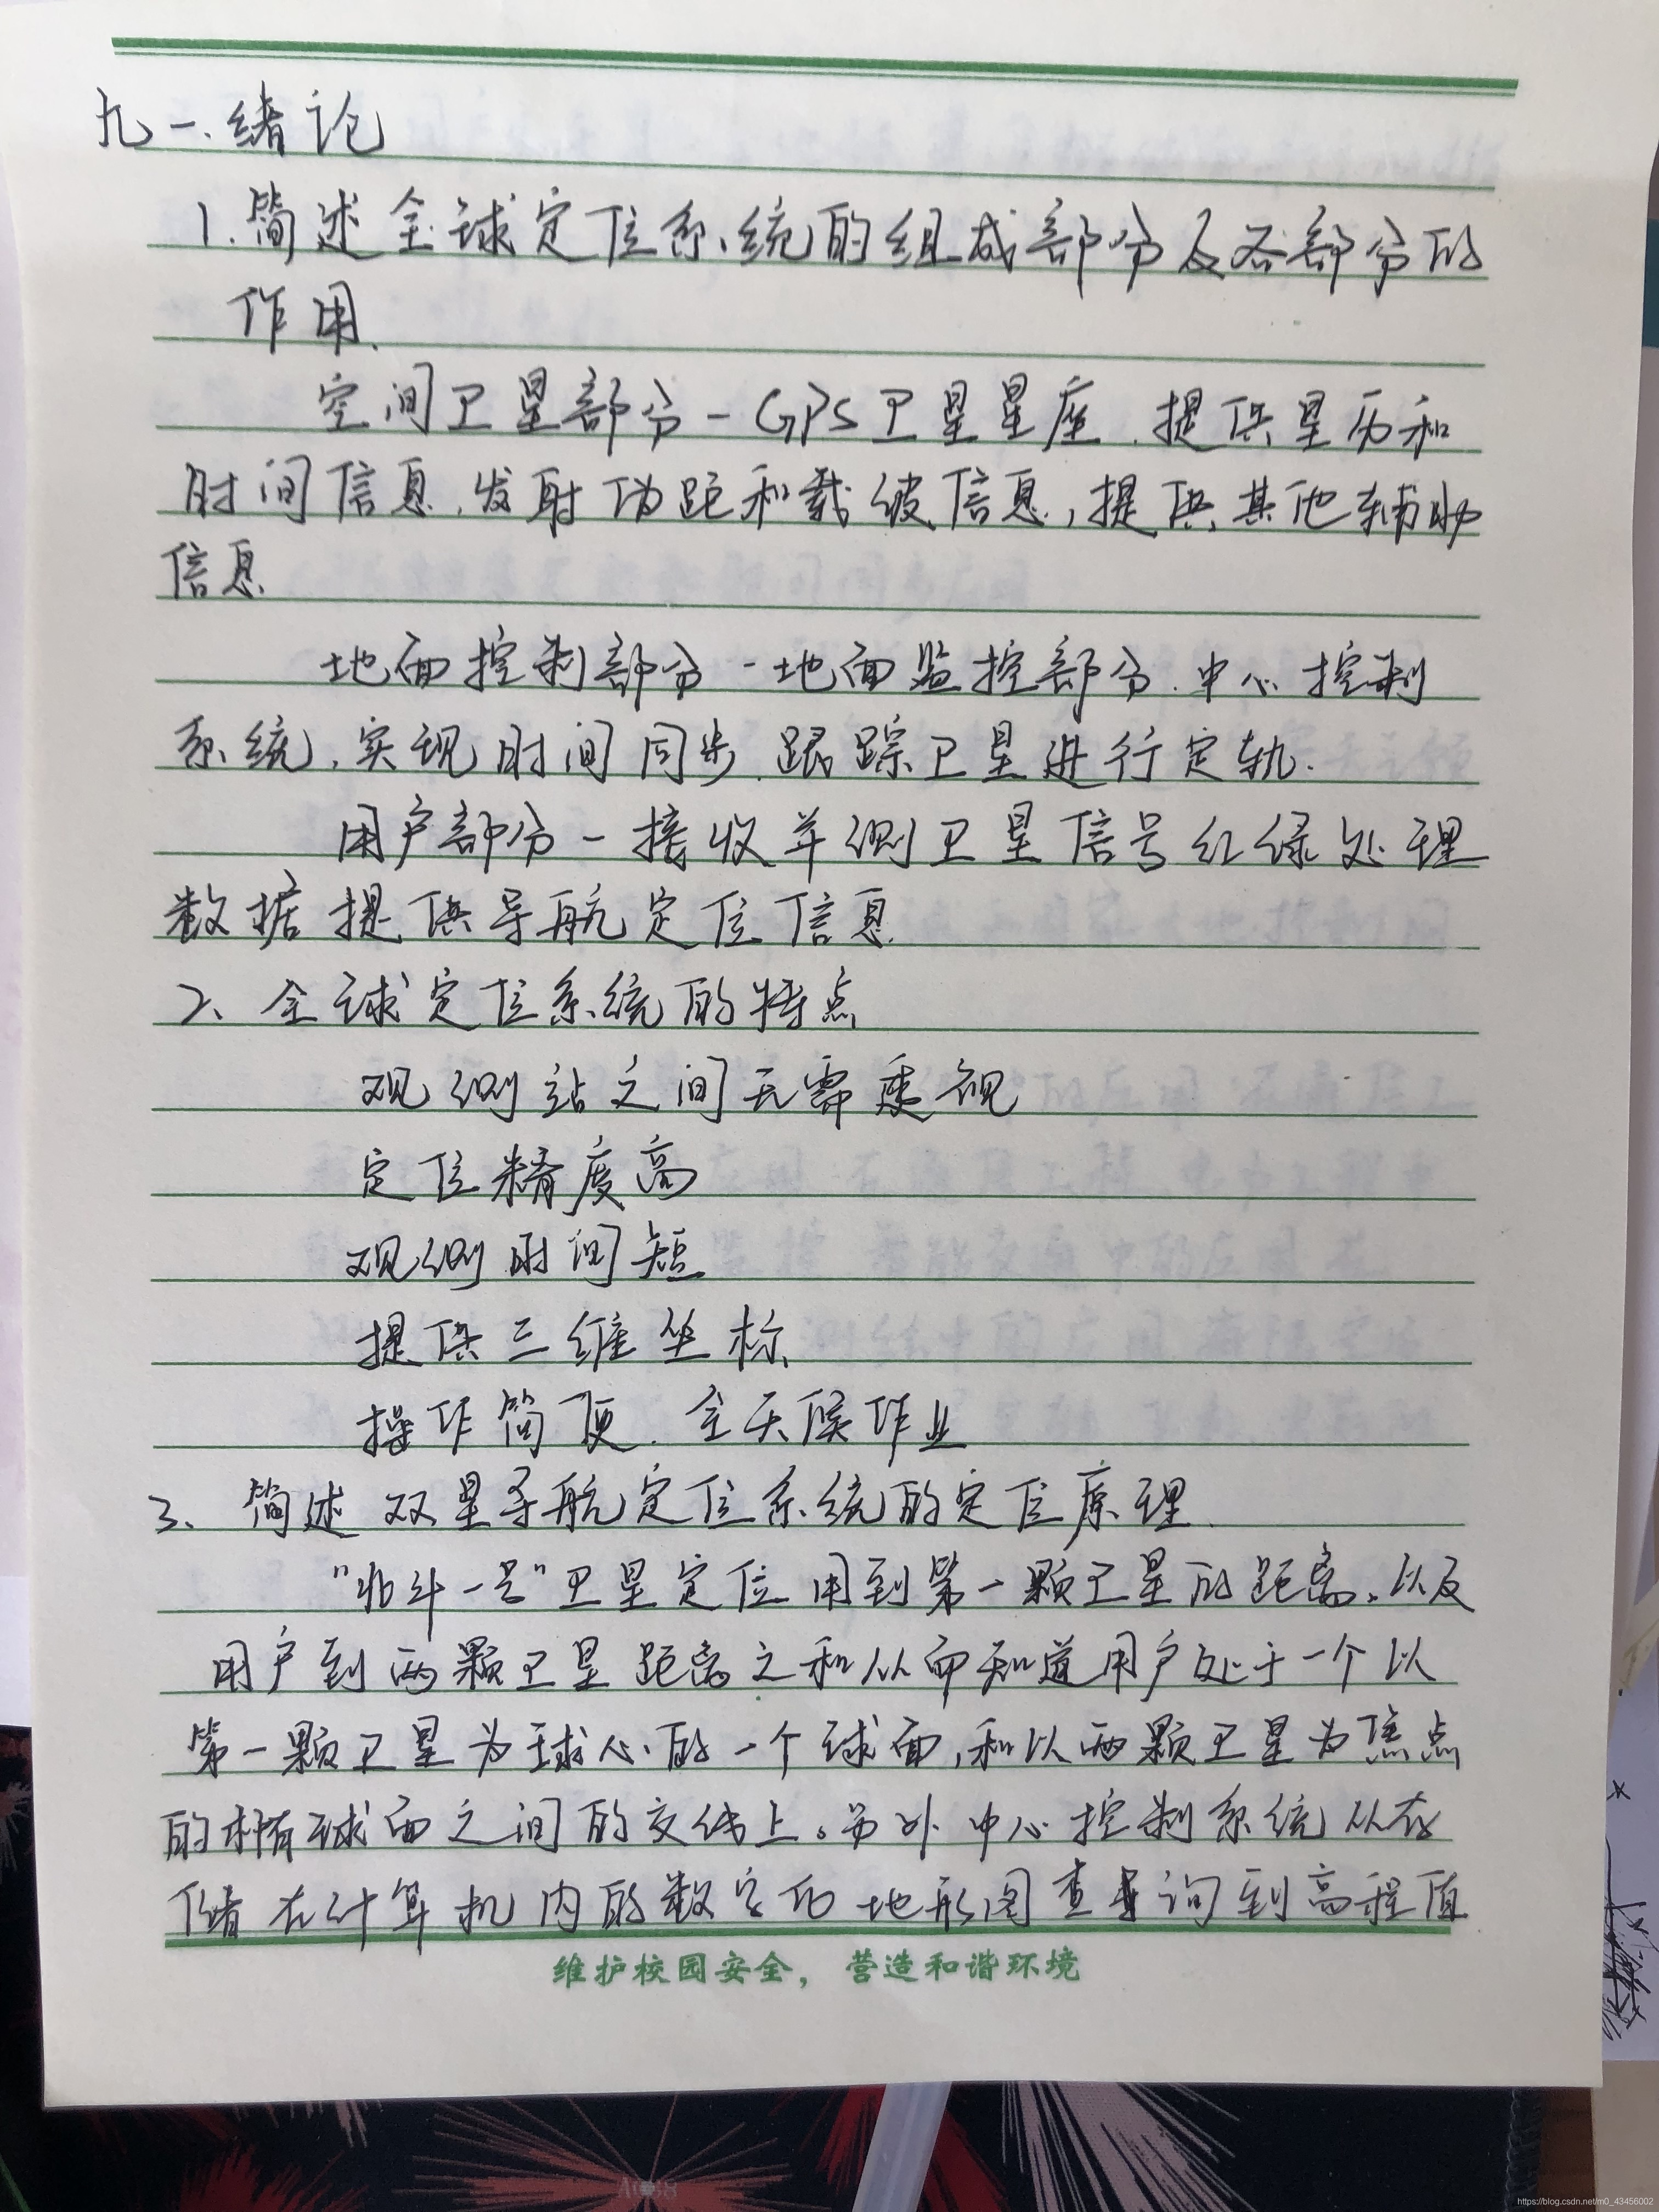 九一.绪论
1.简述全球定位系统的组成部分及各部分的
作用.
空间卫星部分-GPS卫星星座.提供星历和
时间信息.发射伪距和载波信息,提供其他辅助
信息
地面控制部分-地面监控部分.中心控制
系统.实现时间同步.跟踪卫星进行定轨.
用户部分-接收并测卫星信号红绿处理
数据提供导航定位信息
2、全球定位系统的特点
观测站之间无需通视
定位精度高
观测时间短
提供三维坐标
操作简便.全天候作业
3、简述双星导航定位系统的定位原理.
"北斗一号"卫星定位用到第一颗卫星的距离.以及
用户到两颗卫星距离之和从而知道用户处于一个以
第一颗卫星为球心的一个球面,和以两颗卫星为焦点
的椭球面之间的交线上。另外中心控制系统从存
储在计算机内的数字化地形图查寻询到高程值
维护校园安全，营造和谐环境
https://blog.csdn.net/m0_43456002